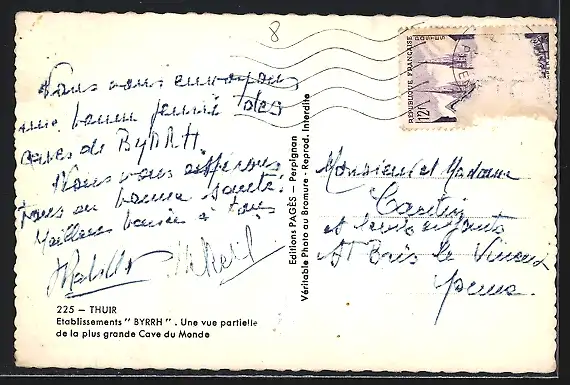 8
Nous vous envoyons
une bonne journée des
caves de BYRRH
Nous vous espérons
tous en bonne santé.
Meilleurs baisers à tous
225 — THUIR
Etablissements " BYRRH " . Une vue partielle
de la plus grande Cave du Monde
Editions PAGÈS — Perpignan
Véritable Photo au Bromure - Reprod. Interdite
REPUBLIQUE FRANÇAISE
POSTES
12F
Monsieur et Madame
et leurs enfants
St Bris le Vineux
Yonne.